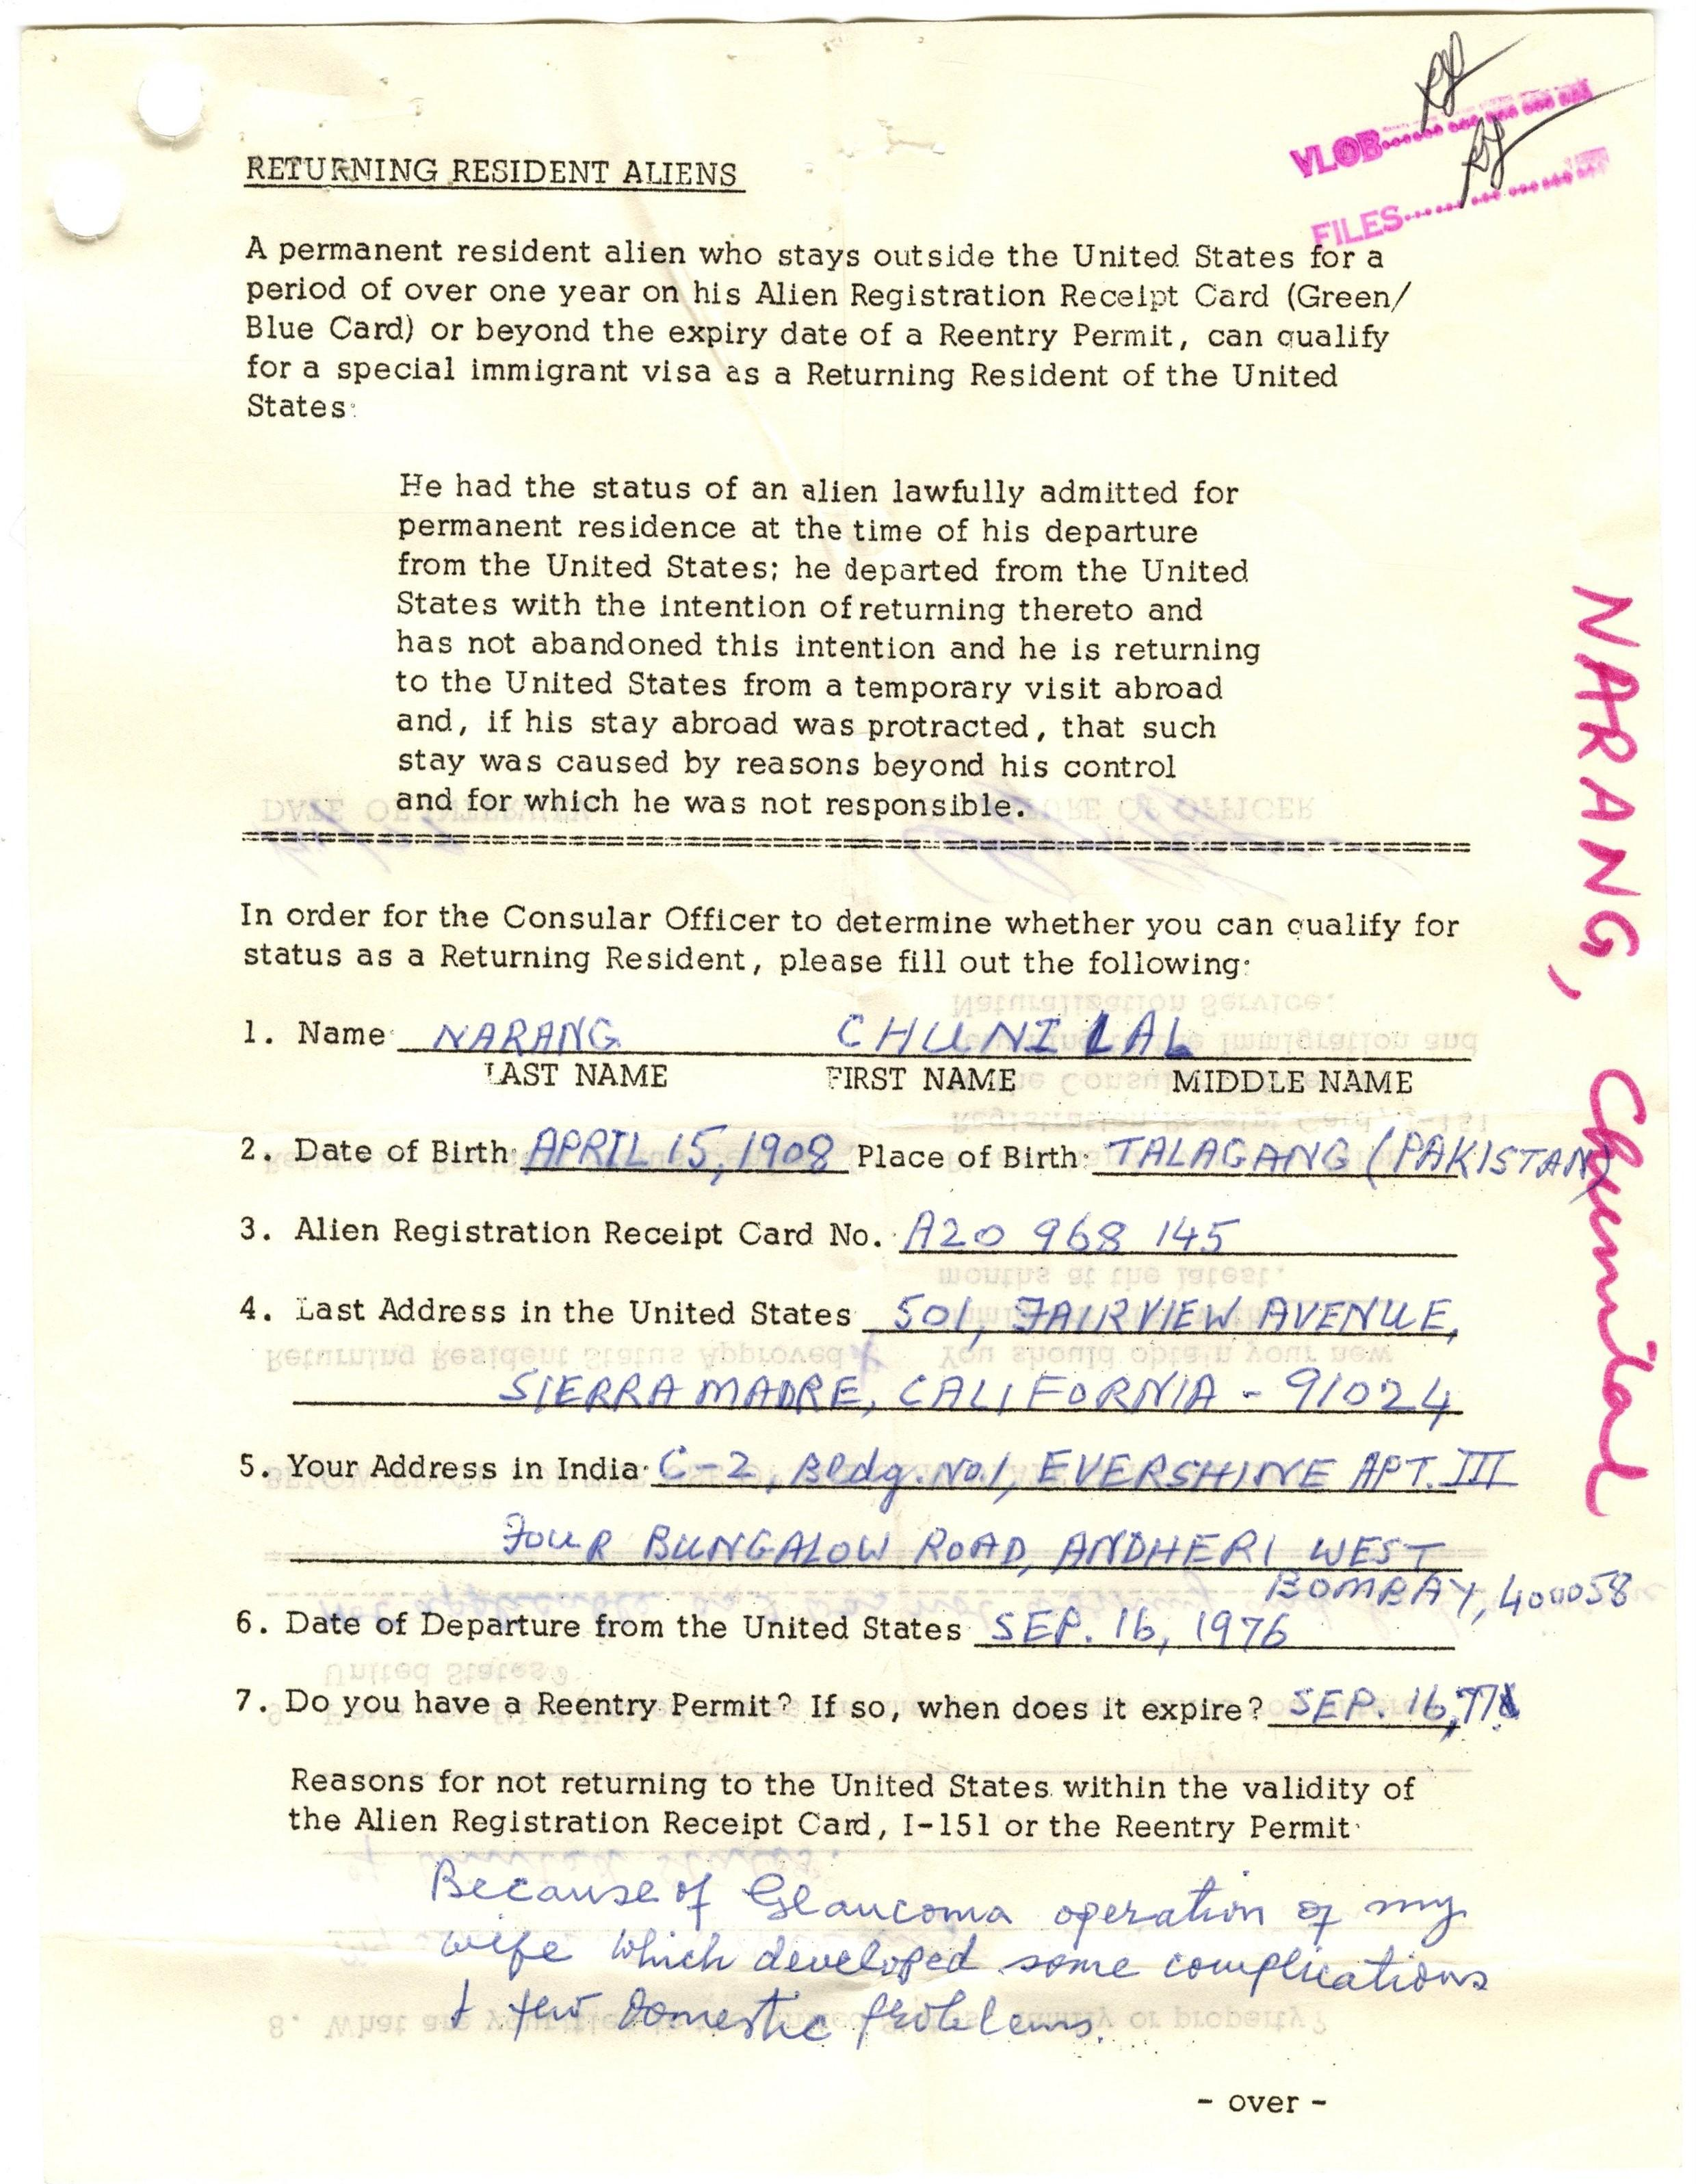 VLOB
FILES
RETURNING RESIDENT ALIENS
A permanent resident alien who stays outside the United States for a
period of over one year on his Alien Registration Receipt Card (Green/
Blue Card) or beyond the expiry date of a Reentry Permit, can qualify
for a special immigrant visa as a Returning Resident of the United
States:
He had the status of an alien lawfully admitted for
permanent residence at the time of his departure
from the United States; he departed from the United
States with the intention of returning thereto and
has not abandoned this intention and he is returning
to the United States from a temporary visit abroad
and, if his stay abroad was protracted, that such
stay was caused by reasons beyond his control
and for which he was not responsible.
In order for the Consular Officer to determine whether you can qualify for
status as a Returning Resident, please fill out the following:
1. Name: NARANG CHUNI LAL
LAST NAME FIRST NAME MIDDLE NAME
2. Date of Birth: APRIL 15, 1908 Place of Birth: TALAGANG (PAKISTAN)
3. Alien Registration Receipt Card No. A20 968 145
4. Last Address in the United States 501, FAIRVIEW AVENUE,
SIERRA MADRE, CALIFORNIA - 91024
5. Your Address in India: C-2, Bldg. No.1, EVERSHINE APT. III
FOUR BUNGALOW ROAD, ANDHERI WEST
BOMBAY, 400058
6. Date of Departure from the United States SEP. 16, 1976
7. Do you have a Reentry Permit? If so, when does it expire? SEP. 16,
Reasons for not returning to the United States within the validity of
the Alien Registration Receipt Card, I-151 or the Reentry Permit:
Because of Glaucoma operation of my
wife which developed some complications
& few Domestic problems.
- over -
NARANG, Chunilal